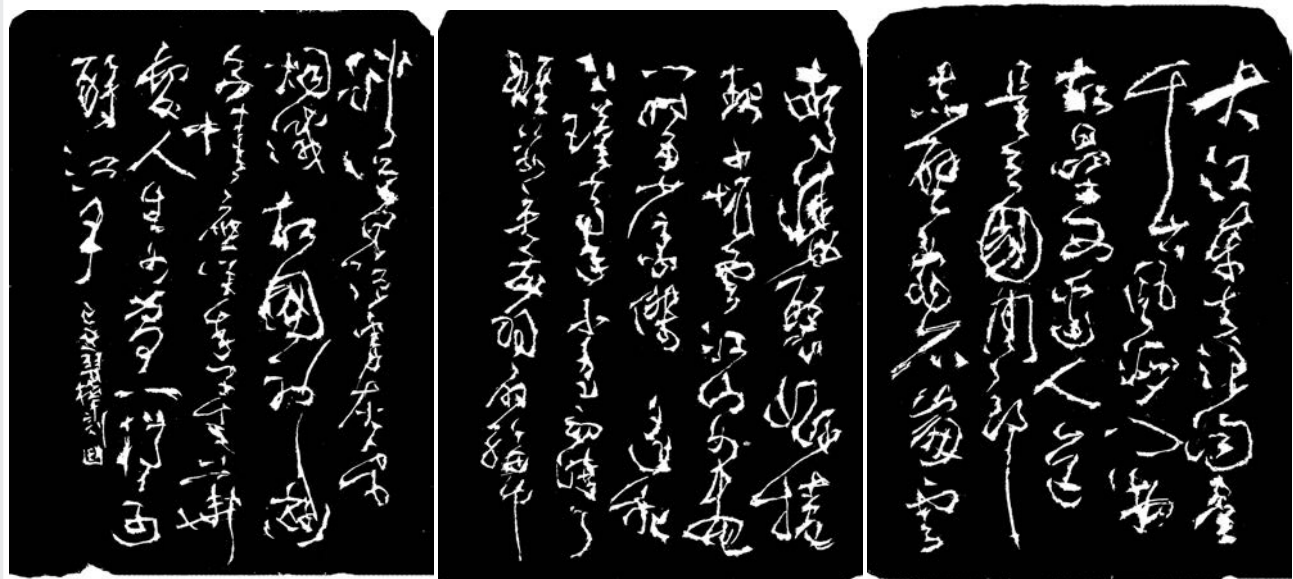 大江東去浪淘盡
千古風流人物
故壘西邊人道
是三國周郎
赤壁亂石崩雲
驚濤裂岸捲
起千堆雪江山如畫
一時多少豪傑遙想
公瑾當年小喬初嫁了
雄姿英發羽扇綸巾
談笑間灰飛
烟滅故國神遊
多情應笑我早生華
髮人生如夢一樽還
酹江月